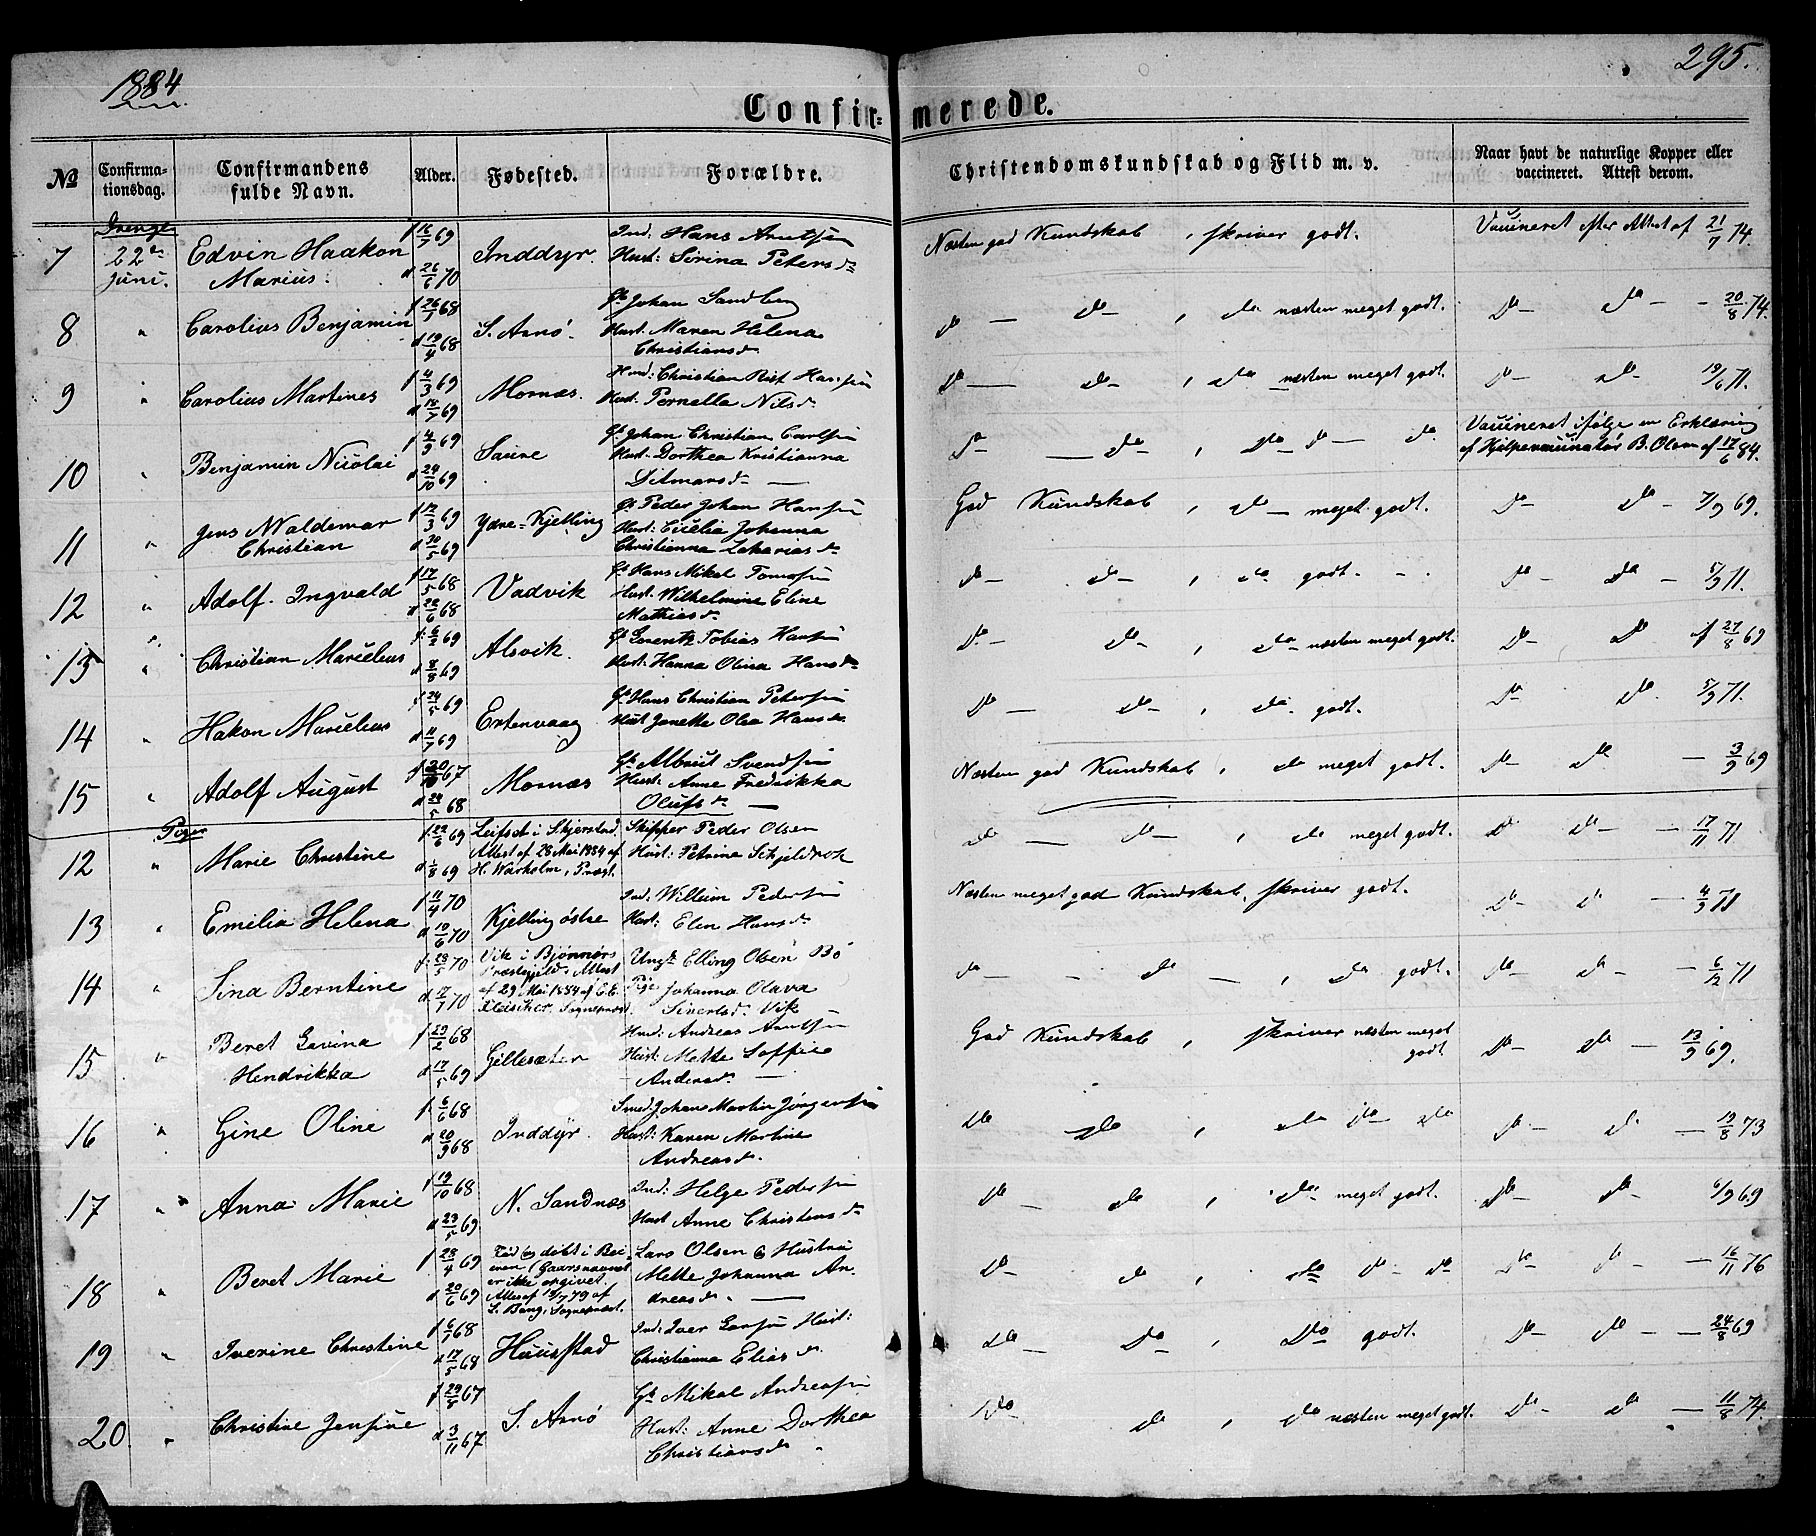 1884
295.
Confir= merede.
№ Confirmationsdag. Confirmandens fulde Navn. Alder. Fødested. Forældre. Christendomskundskab og Flid m. v. Naar havt de naturlige Kopper eller vaccineret. Attest derom.
Drenge
7 22de Juni. Edvin Haakon Marius. f 16/7 69 d 26/6 70 Inddyr. Ind: Hans Arntsen Hust: Serina Petersdr Næsten god Kundskab, skriver godt. Vaccineret efter Attest af 21/7 74.
8 " Carolius Benjamin f 26/1 68 d 19/4 68 S. Arnö. Gb Johan Sandberg Hust. Maren Helena Christiansdr Do — Do — , Do næsten meget godt. Do — Do — 20/8 74.
9 " Carolius Martines f 4/3 69 d 18/7 69 Mornæs. Hmd: Christian Rist Hansen Hust. Pernella Nilsdr Do — Do — , Do næsten meget godt. Do — Do — 19/6 71.
10 " Benjamin Nicolai f 4/9 69 d 24/10 69 Saure Gb Johan Christian Carlsen Hust. Dorthea Kristianna Ditmarsdr — Do — Do , Do Do — Do Vaccineret ifølge en Erklæring af Hjelpevaccinatør B. Olsen af 17/6 84.
11 " Jens Waldemar Christian f 12/3 69 d 30/5 69 Ydre-Kjelling Gb Peder Johan Hansen Hust: Cicelia Johanna Christianna Zakariasdr God Kundskab, Do — meget godt. Do — Do — 7/9 69.
12 " Adolf Ingvald f 17/5 68 d 28/6 68 Vadvik Gb Hans Mikal Tomsen Hust: Wilhelmine Eline Mathiasdr Do — Do — , Do godt. Do — Do — 5/9 71.
13 " Christian Marcelius f 6/2 69 d 8/8 69 Alsvik. Gb Lorentz Tobias Hansen Hust. Hanna Olina Hansdr Do — Do — , Do næsten meget godt. Do — Do af 27/8 69
14 " Hakon Marcelius f 24/5 69 d 11/7 69 Ertenvaag Gb Hans Christian Petersen Hust Janette Olea Hansdr Do — Do — , Do godt. Do Do 5/9 71.
15 " Adolf August f 20/10 67 d 24/5 68 Mornæs Gb Albrict Svendsen Hust: Anne Fredrikka Olufsdr — Næsten god Kundskab, Do meget godt. Do — Do — 3/9 69
Piger
12 " Marie Christine f 22/6 69 d 1/8 69 Leifset i Skjerstad. Attest af 28 Mai 1884 af H. Warholm, Præst. Skipper Peder Olsen Hust: Petrine Schjeldrok Do — Do — , Do meget godt. Do Do — 17/11 71
13 " Emilia Helena f 11/4 70 d 10/6 70 Kjelling östre Ind: Willum Pedersen Hust: Elen Hansdr Næsten meget god Kundskab, skriver godt. Do — Do — 4/9 71
14 " Sina Berntine f 23/5 70 d 17/7 70 Vik i Bjønnørs Præstegjeld. Attest af 29 Mai 1884 af Sognepræst. Ungk. Elling Olsen Bö Pige Johanna Olava Sivertsdr Vik Do — Do — , Do godt. Do — Do — 6/12 71
15 " Beret Gavina Hendrikka f 29/2 68 d 17/5 69 Gillesæter Hmd: Andreas Arntsen Hust: Mette Soffie Andersdr — God Kundskab, skriver næsten meget godt Do — Do — 13/9 69.
16 " Gine Oline f 6/6 68 d 20/9 68 Inddyr. Smed Johan Martin Jörgensen Hust: Karen Martine Andreasdr. Do Do , Do Do Do Do — Do — 19/8 73
17 " Anna Marie f 19/10 68 d 23/5 69 N. Sandnæs Ind: Helge Pedersen Hust Anne Christensdr Do — Do — , Do meget godt. Do — Do — 6/9 69
18 " Beret Marie f 28/4 69 d 20/6 69 Fød og döbt i Beieren (Gaarsnavnet er ikke opgivet. Attest af 18/7 79 af S. Bang, Sognepræst. Lars Olsen & Hustru Mette Johanna Andreasdr. — Do — Do — , Do Do — Do Do — Do — 16/11 76
19 " Iverine Christine f 6/1 68 d 17/5 68 Huusstad Ind: Iver Larsen Hust: Christianna Eliasdr. Do — Do — , Do godt. Do — Do — 24/8 69
20 " Christine Jensine f 29/8 67 d 3/11 67 S. Arnö Gb Mikal Andreasen Hust: Anne Dorthea Christiansdr Do — Do — , Do næsten meget godt. Do — Do — 11/8 74.